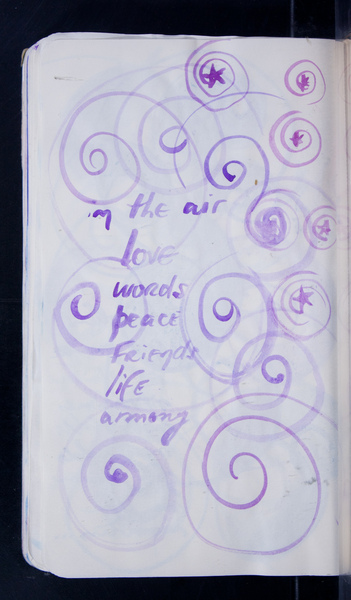 in the air
love
words
peace
Friends
life
armony